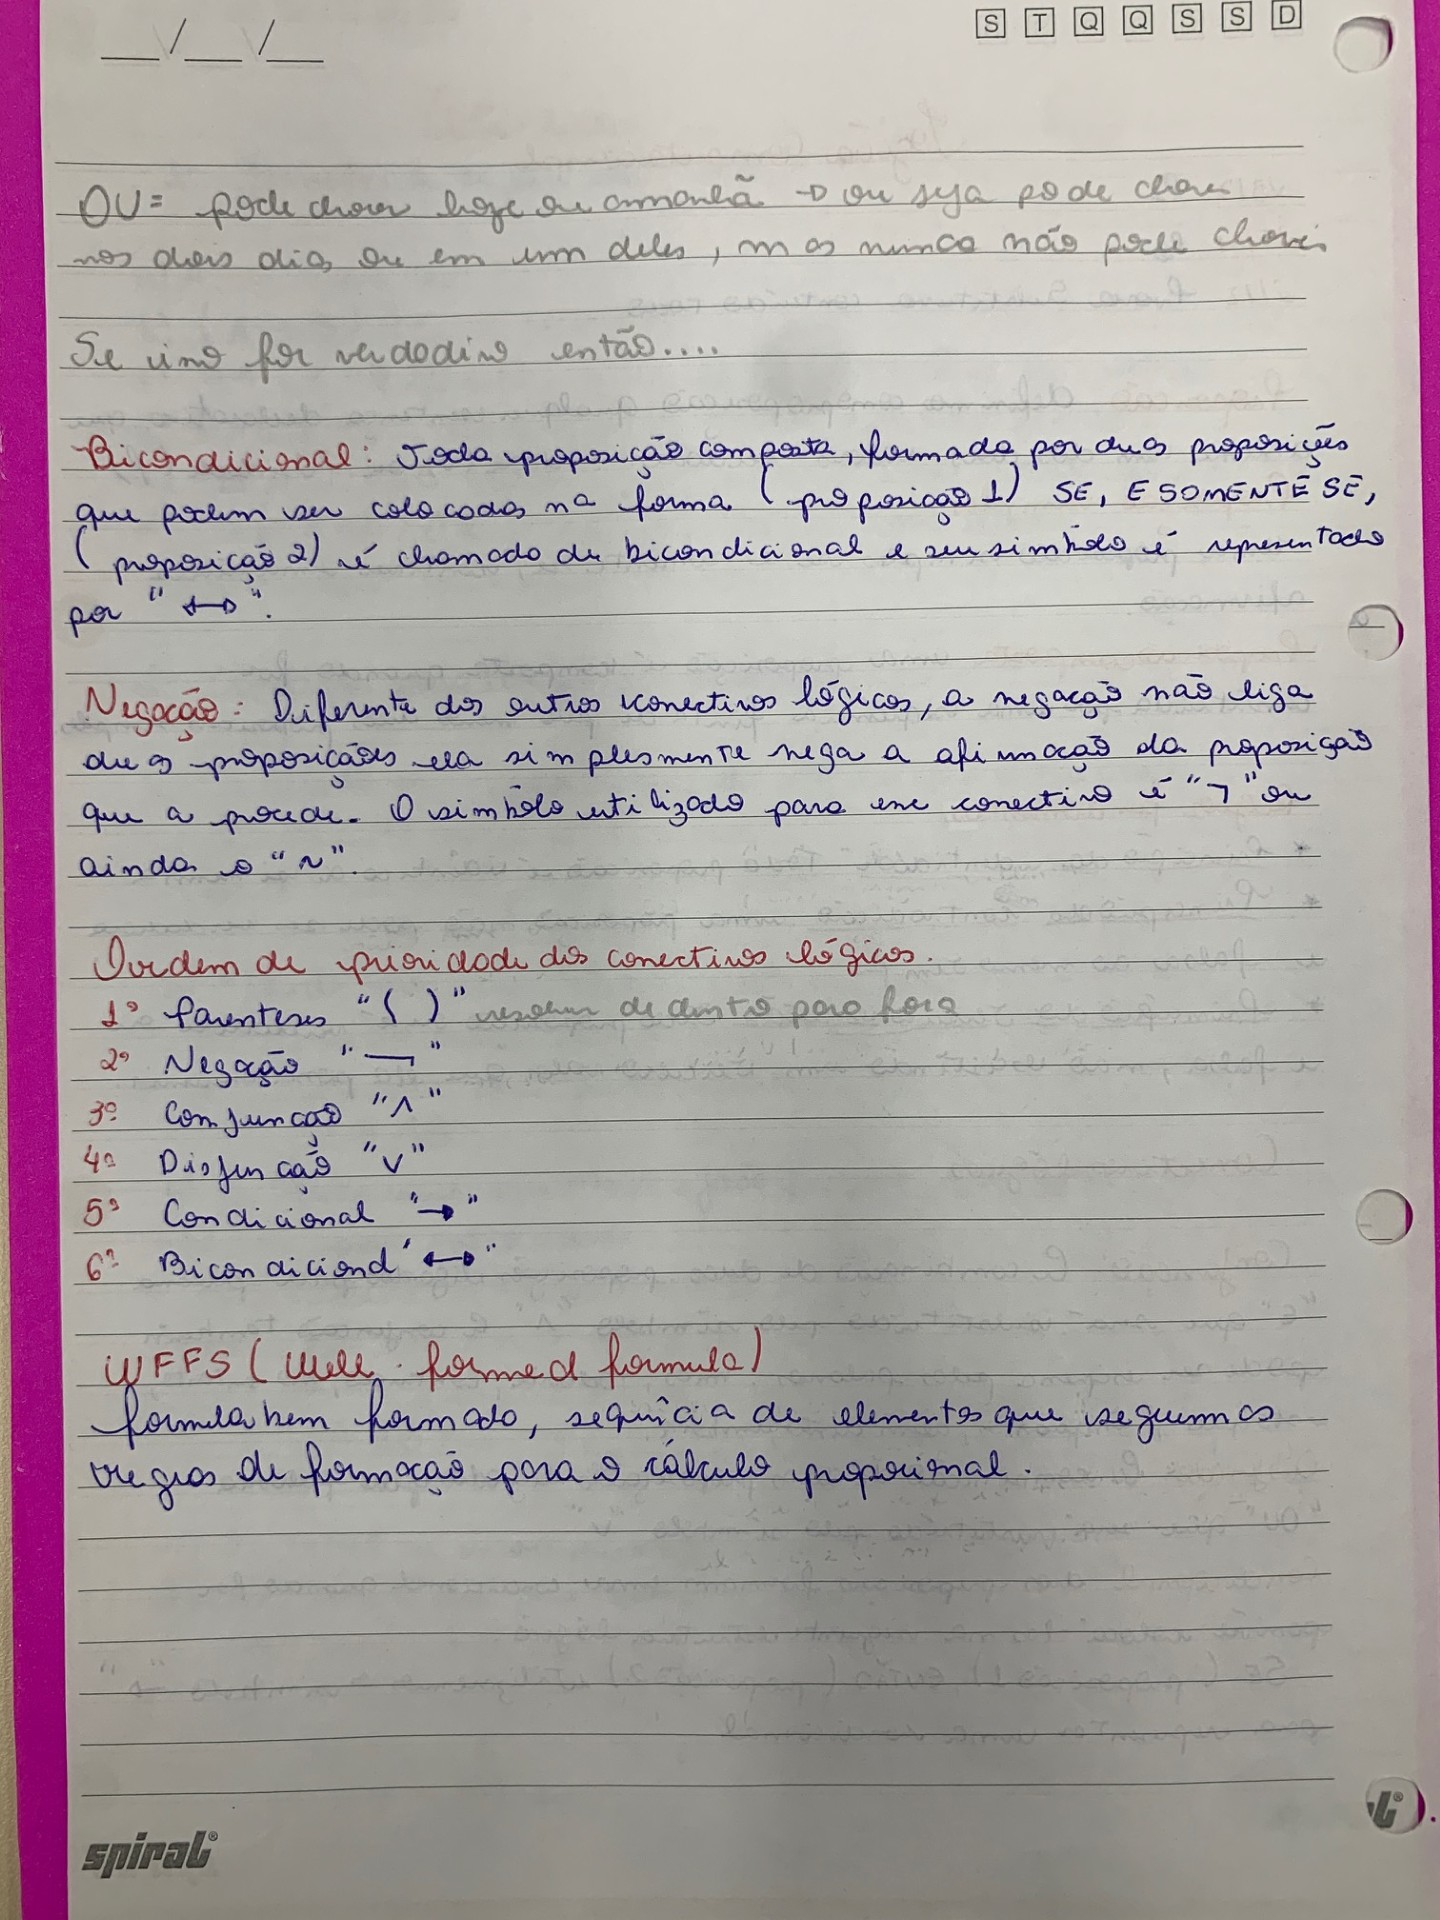 __/__/__
S T Q Q S S D
OU = pode chover hoje ou amanhã → ou seja pode chover
nos dois dia, ou em um deles, mas nunca não pode chover
Se uma for verdadeira então....
Bicondicional: Toda proposição composta, formada por duas proposições
que podem ser colocadas na forma (proposição 1) SE, E SOMENTE SE,
(proposição 2) é chamado de bicondicional e seu simbolo é representado
por "↔".
Negação: Diferente dos outros conectivos lógicos, a negação não liga
duas proposições ela simplesmente nega a afirmação da proposição
que a procede. O simbolo utilizado para esse conectivo é "¬" ou
ainda o "~".
Ordem de prioridade dos conectivos lógicos.
1º Parenteses "( )" resolver de dentro para fora
2º Negação "¬"
3º Conjunção "∧"
4º Disjunção "∨"
5º Condicional "→"
6º Bicondicional "↔"
WFFS (Well-formed formula)
formula bem formado, sequência de elementos que seguem as
regras de formação para o cálculo proposicional.
spiral®